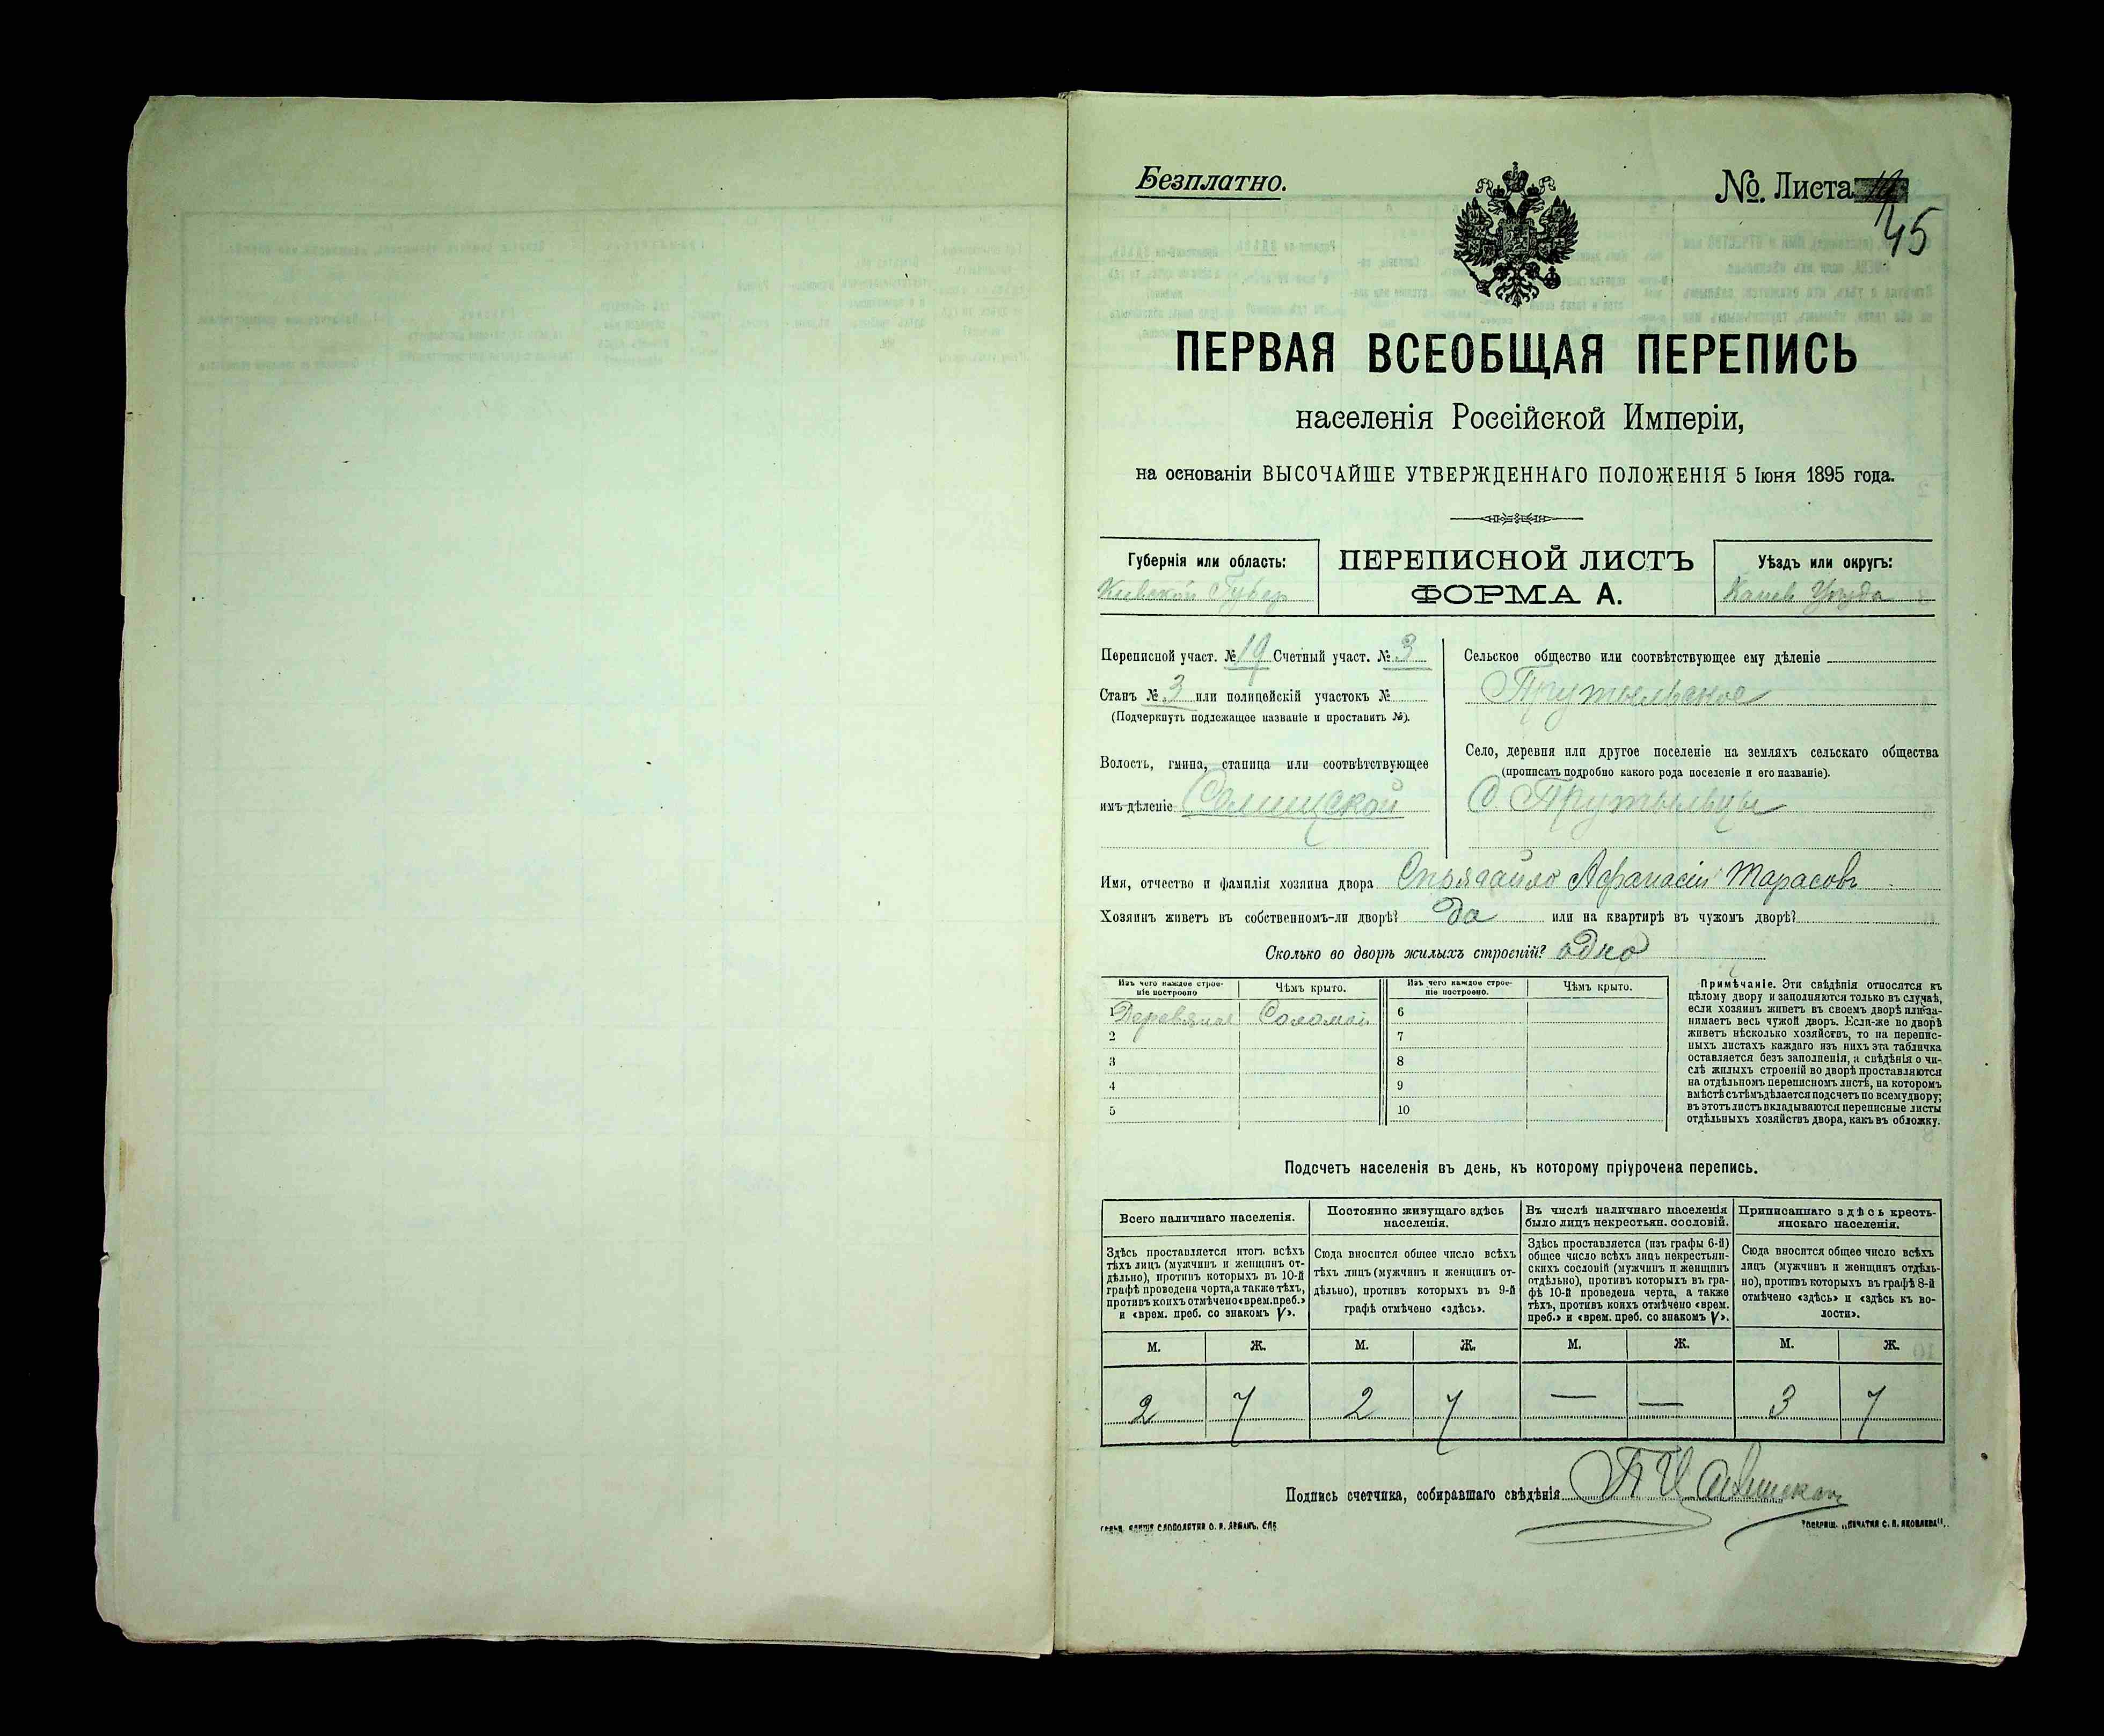 Безплатно.
№. Листа
45
ПЕРВАЯ ВСЕОБЩАЯ ПЕРЕПИСЬ
населенія Россійской Имперіи,
на основаніи ВЫСОЧАЙШЕ УТВЕРЖДЕННАГО ПОЛОЖЕНІЯ 5 Іюня 1895 года.
Губернія или область:
Кіевской Губер
ПЕРЕПИСНОЙ ЛИСТЪ
ФОРМА А.
Уѣздъ или округъ:
Канев Уѣзда
Переписной участ. № 19 Счетный участ. № 3
Станъ № 3 или полицейскій участокъ №
(Подчеркнуть подлежащее названіе и проставить №).
Волость, гмина, станица или соотвѣтствующее
имъ дѣленіе Селищской
Сельское общество или соотвѣтствующее ему дѣленіе
Прутыльское
Село, деревня или другое поселеніе на земляхъ сельскаго общества
(прописать подробно какого рода поселеніе и его названіе).
С Прутыльцы
Имя, отчество и фамилія хозяина двора Спрягайло Афанасій Тарасовъ
Хозяинъ живетъ въ собственномъ-ли дворѣ? Да или на квартирѣ въ чужомъ дворѣ?
Сколько во дворѣ жилыхъ строеній? одно
Изъ чего каждое строе-
ніе построено
Чѣмъ крыто.
Изъ чего каждое строе-
ніе построено.
Чѣмъ крыто.
1 Деревяное Соломой 6
2 7
3 8
4 9
5 10
Примѣчаніе. Эти свѣдѣнія относятся къ
цѣлому двору и заполняются только въ случаѣ,
если хозяинъ живетъ въ своемъ дворѣ или за-
нимаетъ весь чужой дворъ. Если-же во дворѣ
живетъ нѣсколько хозяйствъ, то на перепис-
ныхъ листахъ каждаго изъ нихъ эта табличка
оставляется безъ заполненія, а свѣдѣнія о чи-
слѣ жилыхъ строеній во дворѣ проставляются
на отдѣльномъ переписномъ листѣ, на которомъ
вмѣстѣ съ тѣмъ дѣлается подсчетъ по всему двору;
въ этотъ листъ вкладываются переписные листы
отдѣльныхъ хозяйствъ двора, какъ въ обложку.
Подсчетъ населенія въ день, къ которому пріурочена перепись.
Всего наличнаго населенія.
Здѣсь проставляется итогъ всѣхъ
тѣхъ лицъ (мужчинъ и женщинъ от-
дѣльно), противъ которыхъ въ 10-й
графѣ проведена черта, а также тѣхъ,
противъ коихъ отмѣчено «врем. преб.»
и «врем. преб. со знакомъ V».
Постоянно живущаго здѣсь
населенія.
Сюда вносится общее число всѣхъ
тѣхъ лицъ (мужчинъ и женщинъ от-
дѣльно), противъ которыхъ въ 9-й
графѣ отмѣчено «здѣсь».
Въ числѣ наличнаго населенія
было лицъ некрестьян. сословій.
Здѣсь проставляется (изъ графы 6-й)
общее число всѣхъ лицъ некрестьян-
скихъ сословій (мужчинъ и женщинъ
отдѣльно), противъ которыхъ въ гра-
фѣ 10-й проведена черта, а также
тѣхъ, противъ коихъ отмѣчено «врем.
преб.» и «врем. преб. со знакомъ V».
Приписаннаго здѣсь кресть-
янскаго населенія.
Сюда вносится общее число всѣхъ
лицъ (мужчинъ и женщинъ отдѣль-
но), противъ которыхъ въ графѣ 8-й
отмѣчено «здѣсь» и «здѣсь къ во-
лости».
М. Ж. М. Ж. М. Ж. М. Ж.
2 7 2 7 — — 3 7
Подпись счетчика, собиравшаго свѣдѣнія
Товарищ. „Печатня С. П. Яковлева".